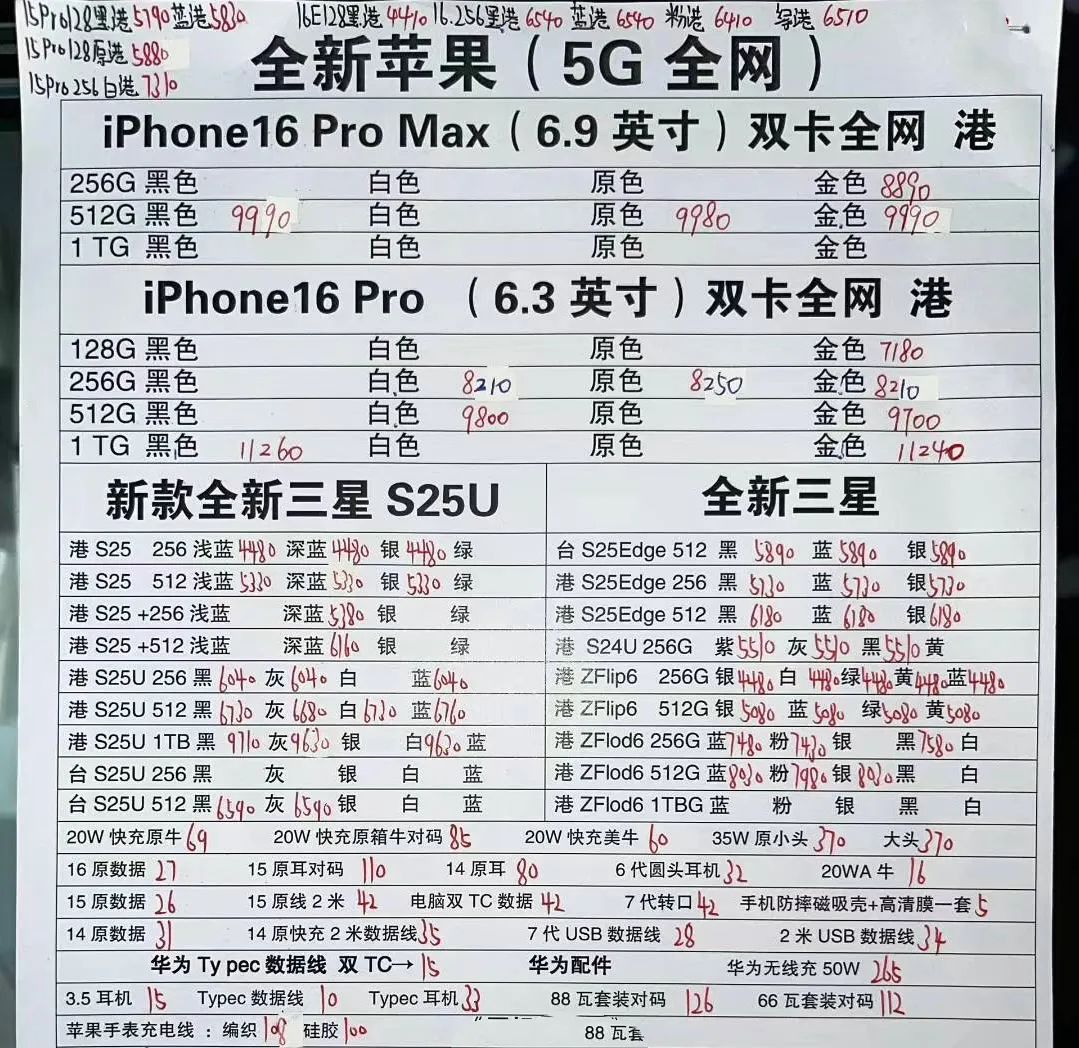 15Pro128黑港5790 蓝港5830 16E128黑港4410 16.256黑港6540 蓝港6540 粉港6410 港6510
15Pro128原港5880
15Pro256白港7310
全新苹果（5G 全网）
iPhone16 Pro Max（6.9 英寸）双卡全网 港
256G 黑色 白色 原色 金色 8890
512G 黑色 9990 白色 原色 9980 金色 9990
1 TG 黑色 白色 原色 金色
iPhone16 Pro （6.3 英寸）双卡全网 港
128G 黑色 白色 原色 金色 7180
256G 黑色 白色 8210 原色 8250 金色 8210
512G 黑色 白色 9800 原色 金色 9700
1 TG 黑色 11260 白色 原色 金色 11240
新款全新三星 S25U 全新三星
港 S25 256 浅蓝 4480 深蓝 4480 银 4480 绿 台 S25Edge 512 黑 5890 蓝 5890 银 5890
港 S25 512 浅蓝 5330 深蓝 5330 银 5330 绿 港 S25Edge 256 黑 5730 蓝 5730 银 5730
港 S25 +256 浅蓝 深蓝 5380 银 绿 港 S25Edge 512 黑 6180 蓝 6180 银 6180
港 S25 +512 浅蓝 深蓝 6160 银 绿 港 S24U 256G 紫 5510 灰 5510 黑 5510 黄
港 S25U 256 黑 6040 灰 6040 白 蓝 6040 港 ZFlip6 256G 银 4480 白 4480 绿 4480 黄 4480 蓝 4480
港 S25U 512 黑 6730 灰 6680 白 6730 蓝 6760 港 ZFlip6 512G 银 5080 蓝 5080 绿 5080 黄 5080
港 S25U 1TB 黑 9710 灰 9630 银 白 9630 蓝 港 ZFlod6 256G 蓝 7480 粉 7430 银 黑 7580 白
台 S25U 256 黑 灰 银 白 蓝 港 ZFlod6 512G 蓝 8030 粉 7980 银 8030 黑 白
台 S25U 512 黑 6590 灰 6590 银 白 蓝 港 ZFlod6 1TBG 蓝 粉 银 黑 白
20W 快充原牛 69 20W 快充原箱牛对码 85 20W 快充美牛 60 35W 原小头 370 大头 370
16 原数据 27 15 原耳对码 110 14 原耳 80 6 代圆头耳机 32 20WA 牛 16
15 原数据 26 15 原线 2 米 42 电脑双 TC 数据 42 7 代转口 42 手机防摔磁吸壳+高清膜一套 5
14 原数据 31 14 原快充 2 米数据线 35 7 代 USB 数据线 28 2 米 USB 数据线 34
华为 Ty pec 数据线 双 TC→ 15 华为配件 华为无线充 50W 265
3.5 耳机 15 Typec 数据线 10 Typec 耳机 33 88 瓦套装对码 126 66 瓦套装对码 112
苹果手表充电线 ：编织 108 硅胶 100 88 瓦套